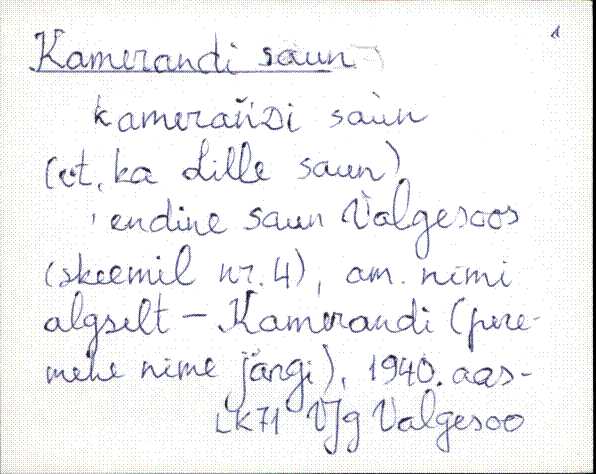 Kamerandi saun 1
kamerańDi saùn
(vt. ka Lille saun)
, endine saun Valgesoos
(skeemil nr. 4), am. nimi
algselt – Kamerandi (pere-
mehe nime järgi), 1940. aas-
LK71 Vjg Valgesoo